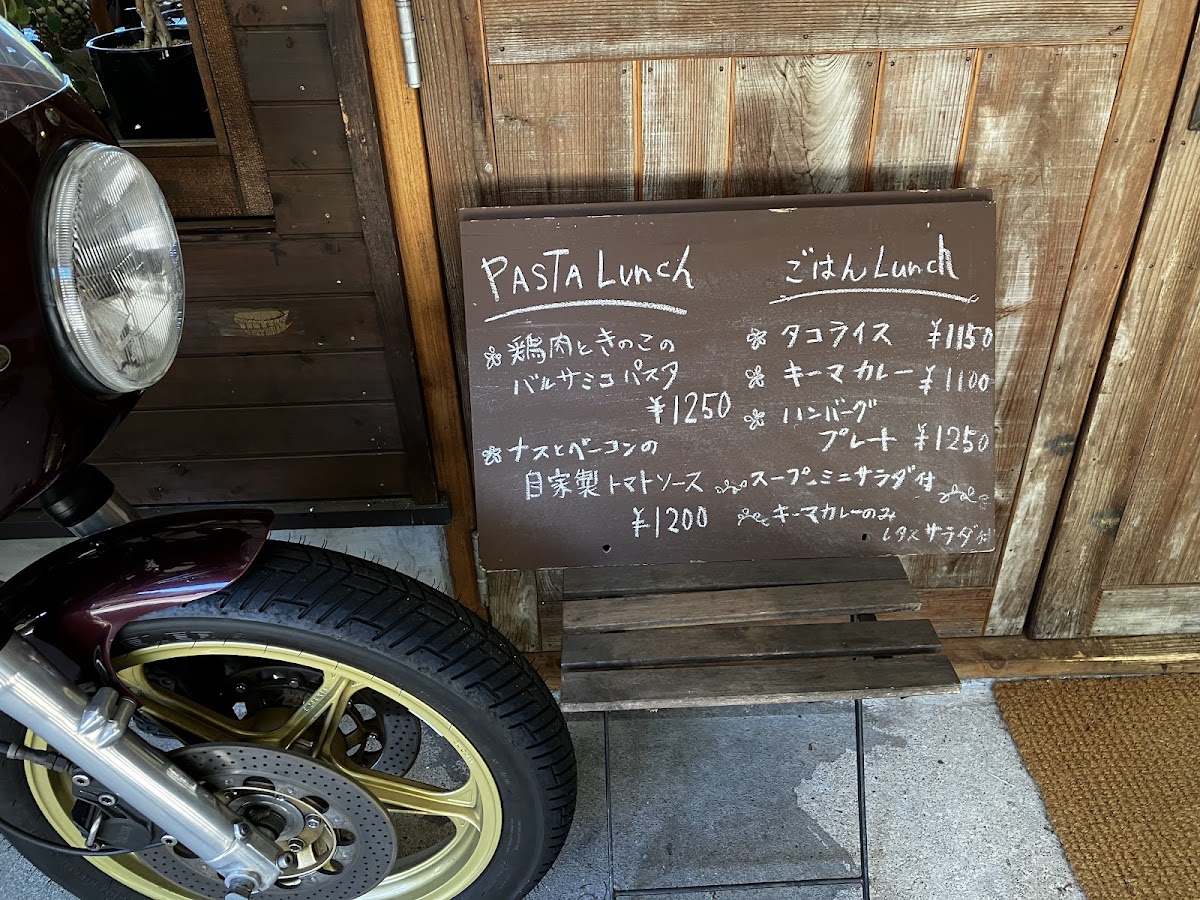 PASTA Lunch
鶏肉ときのこの
バルサミコパスタ
¥1250
ナスとベーコンの
自家製トマトソース
¥1200
ごはんLunch
タコライス ¥1150
キーマカレー ¥1100
ハンバーグ
プレート ¥1250
スープ、ミニサラダ付
キーマカレーのみ
レタスサラダ付